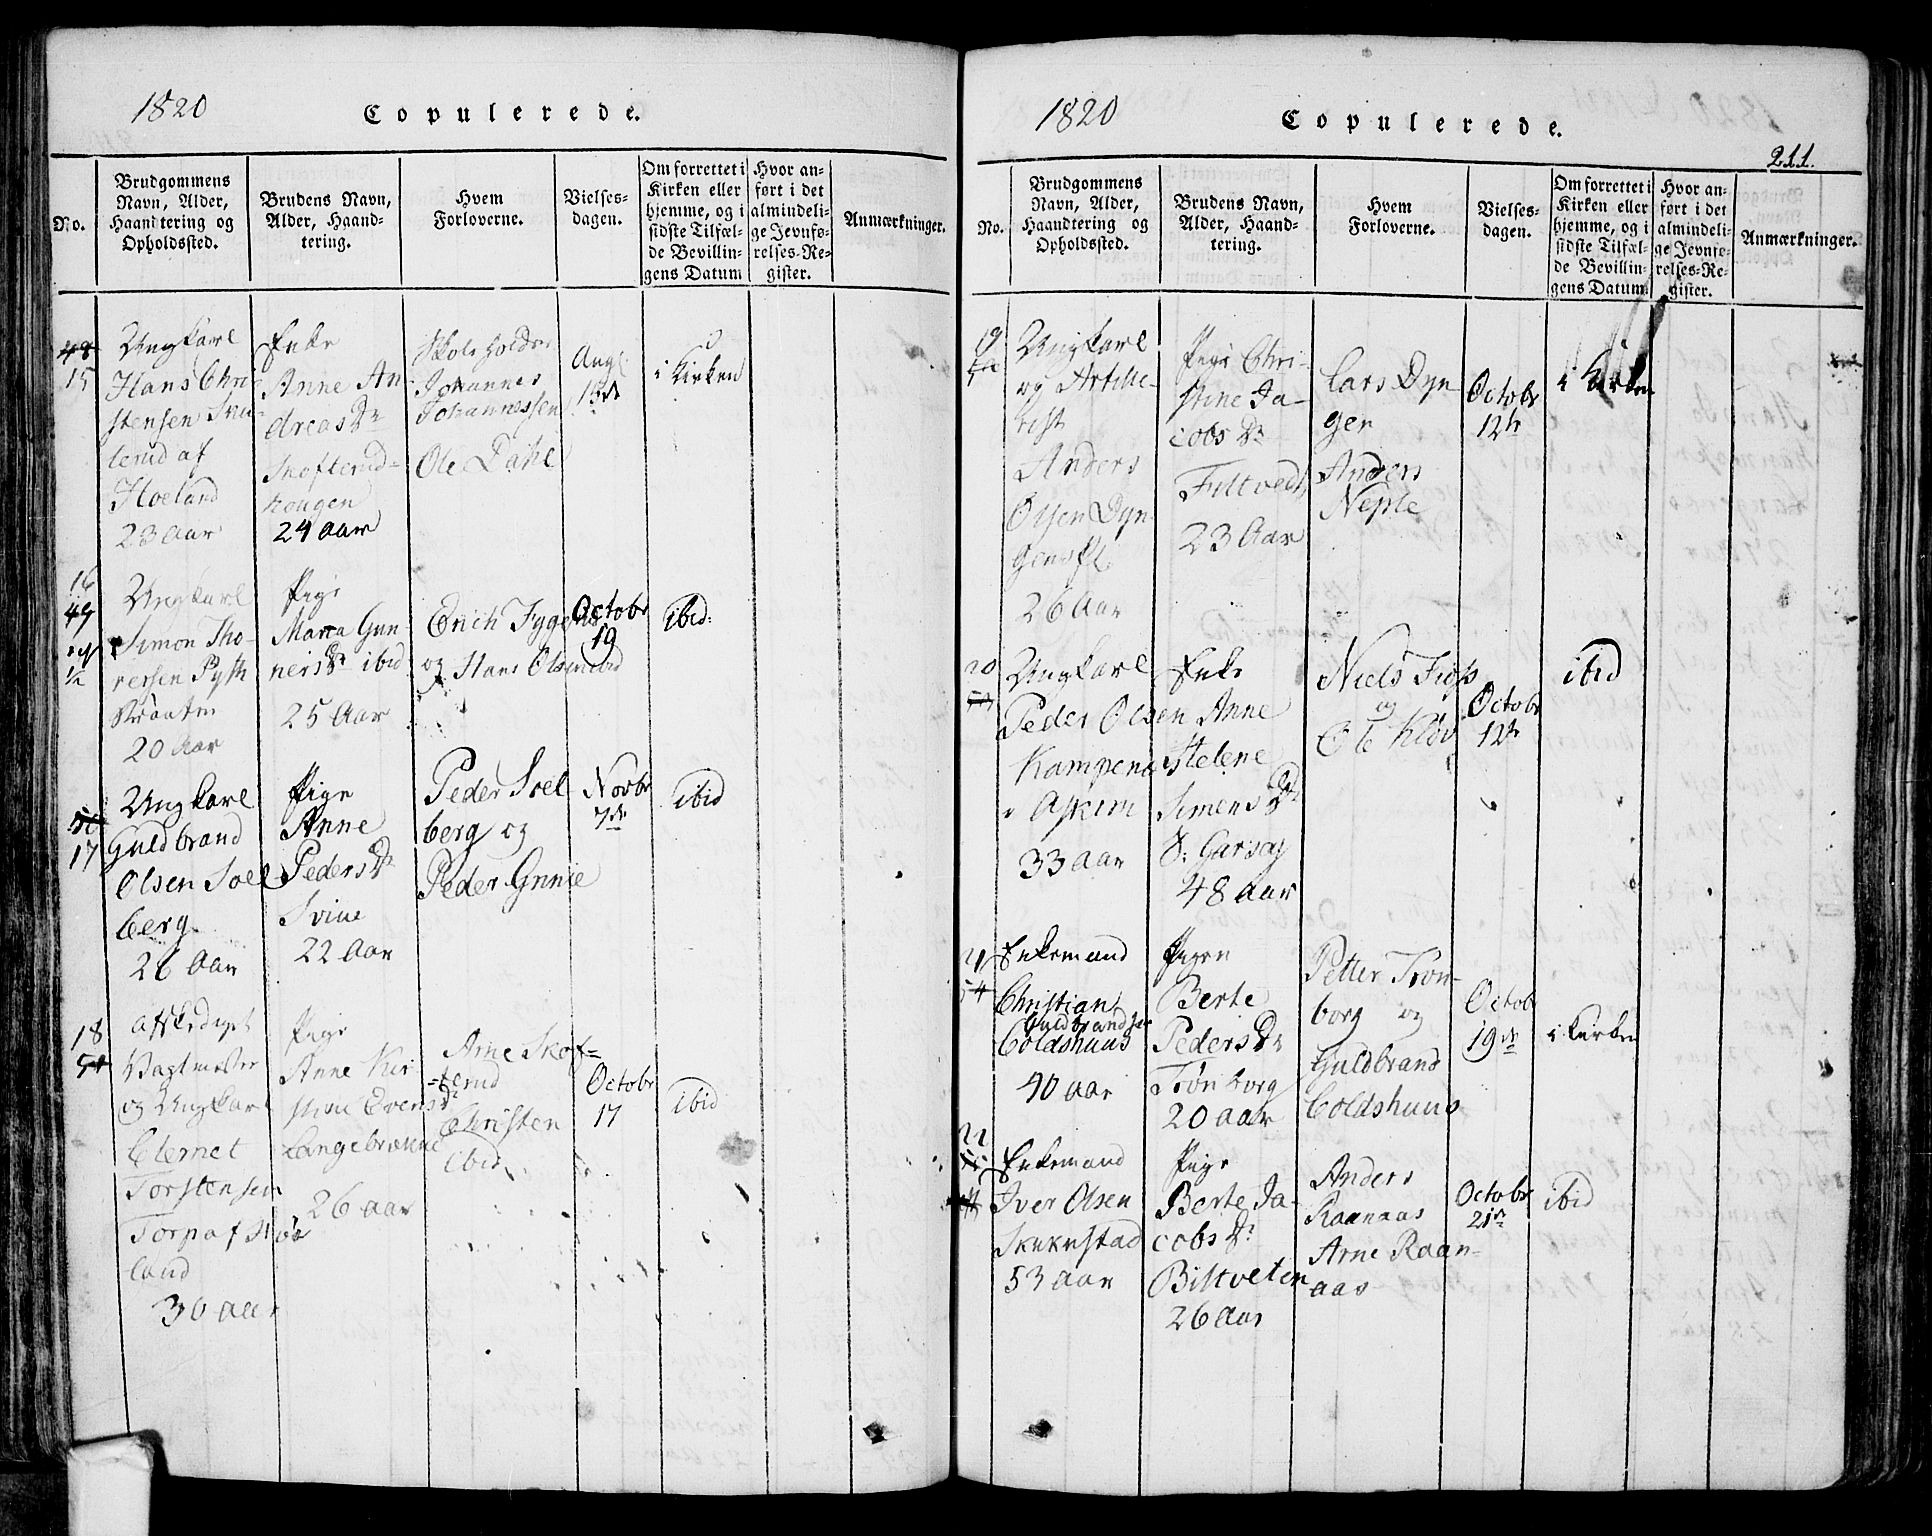 1820
Copulerede.
No.
Brudgommens
Navn, Alder,
Haandtering og
Opholdssted.
Brudens Navn,
Alder, Haand-
tering.
Hvem
Forloverne.
Vielses-
dagen.
Om forrettet i
Kirken eller
hjemme, og i
sidste Tilfæl-
de Bevillin-
gens Datum
Hvor an-
ført i det
almindeli-
ge Jevnfø-
relses-Re-
gister.
Anmærkninger.
48
15
Ungkarl
Hans Chri-
stensen
lerud af
Hoeland
23 Aar
Enke
Anne An-
dreas Dr
Skofterud-
hougen
24 Aar
Skoleholder
Johannes
Johannessen
Ole Dahl
Aug
i Kirken
16
49
Ungkarl
Simon Tho-
resen
20 Aar
Pige
Maria Gun-
ners Dr ibid
25 Aar
Erich
og Hans Olsen ibid
Octobr
19
ibid:
50
17
Ungkarl
Guldbrand
Olsen Soel
berg
26 Aar
Pige
Anne
Peders Dr
Svine
22 Aar
Peder Soel
berg og
Peder
Novbr
7de
ibid
18
51
Afskediget
Vagtmester
og Ungkarl
Torstensen
Torp af Høe
land
30 aar
Pige
Anne Kir-
stine Evens Dr
Langebrække
26 aar
Arne Skof=
=terud
Christen
ibid
Octobr
17
ibid
1820
Copulerede.
211.
No.
Brudgommens
Navn, Alder,
Haandtering og
Opholdssted.
Brudens Navn,
Alder, Haand-
tering.
Hvem
Forloverne.
Vielses-
dagen.
Om forrettet i
Kirken eller
hjemme, og i
sidste Tilfæl-
de Bevillin-
gens Datum.
Hvor an-
ført i det
almindeli-
ge Jevnfø-
relses-Re-
gister.
Anmærkninger.
19
Ungkarl
og Artille-
rist
Anders
Olsen Dyn-
26 Aar
Pige Chri-
stine Ja-
cobs Dr
Filtvedt
23 Aar
Lars Dyn
gen
Anders
Neple
Octobr
12te
i Kirken
20
Ungkarl
Peder Olsen
Kampen
i Askim
33 Aar
Enke
Anne
Helene
Simens Dr
48 Aar
Niels
og
Ole Kløv
Octobr
12te
ibid
21
54
Enkemand
Christian
Guldbrandsen
Coldshuus
40 aar
Pigen
Berte
Peders Dr
Trønborg
20 aar
Petter Tron-
borg og
Guldbrand
Coldshuus
Octob
19de
i Kirken
22
Enkemand
Iver Olsen
53 aar
Pige
Berte Ja-
cobs Dr
Biltveten
26 Aar
Anders
Raanaas
Arne Raan-
aas
Octobr
21de
ibid